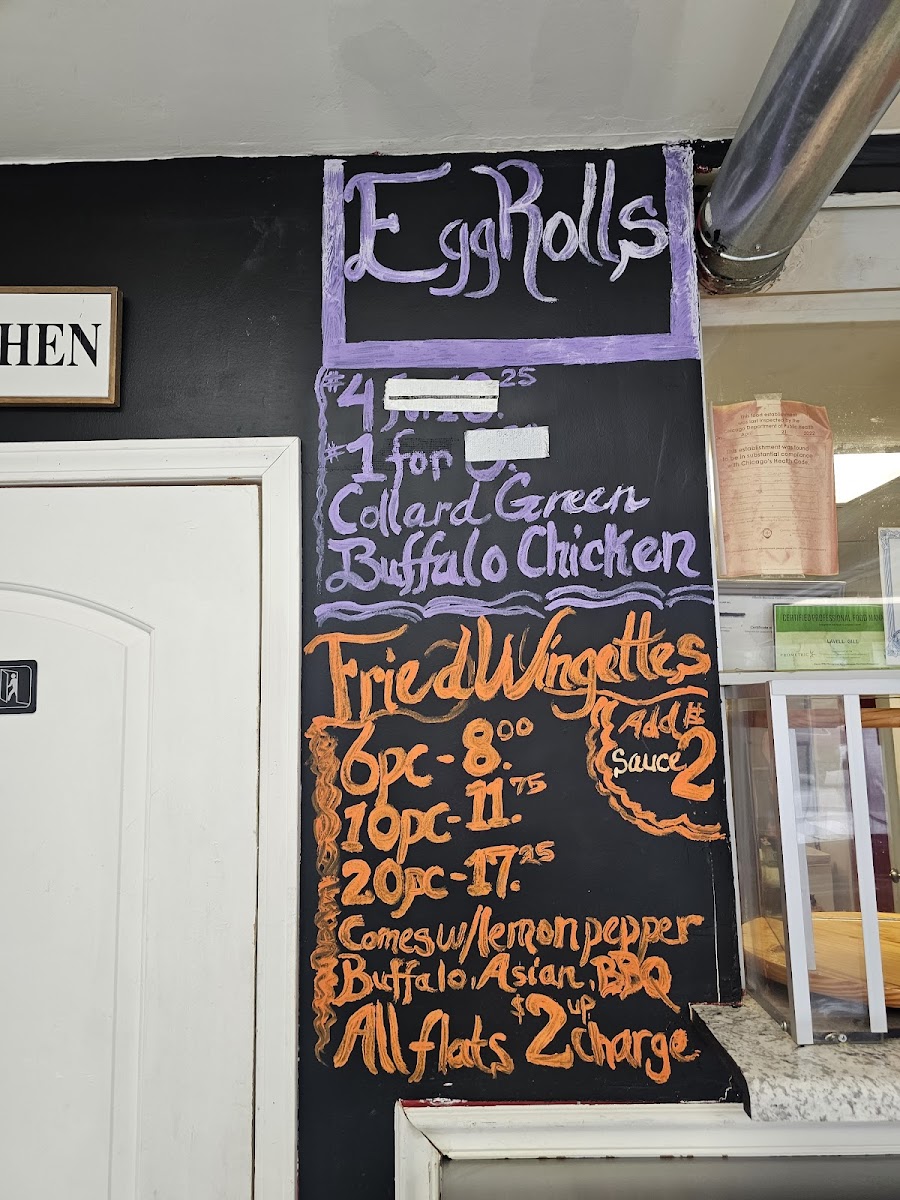 Egg Rolls
HEN
#4 .25
#1 for
Collard Green
Buffalo Chicken
Fried Wingettes
Add $2
Sauce
6pc - 8.00
10pc - 11.75
20pc - 17.25
Comes w/ lemon pepper
Buffalo, Asian, BBQ
All flats $2 up charge
This food establishment
was last inspected by the
Chicago Department of Public Health
establishment was found
be in substantial compliance
with Chicago's Health Code.